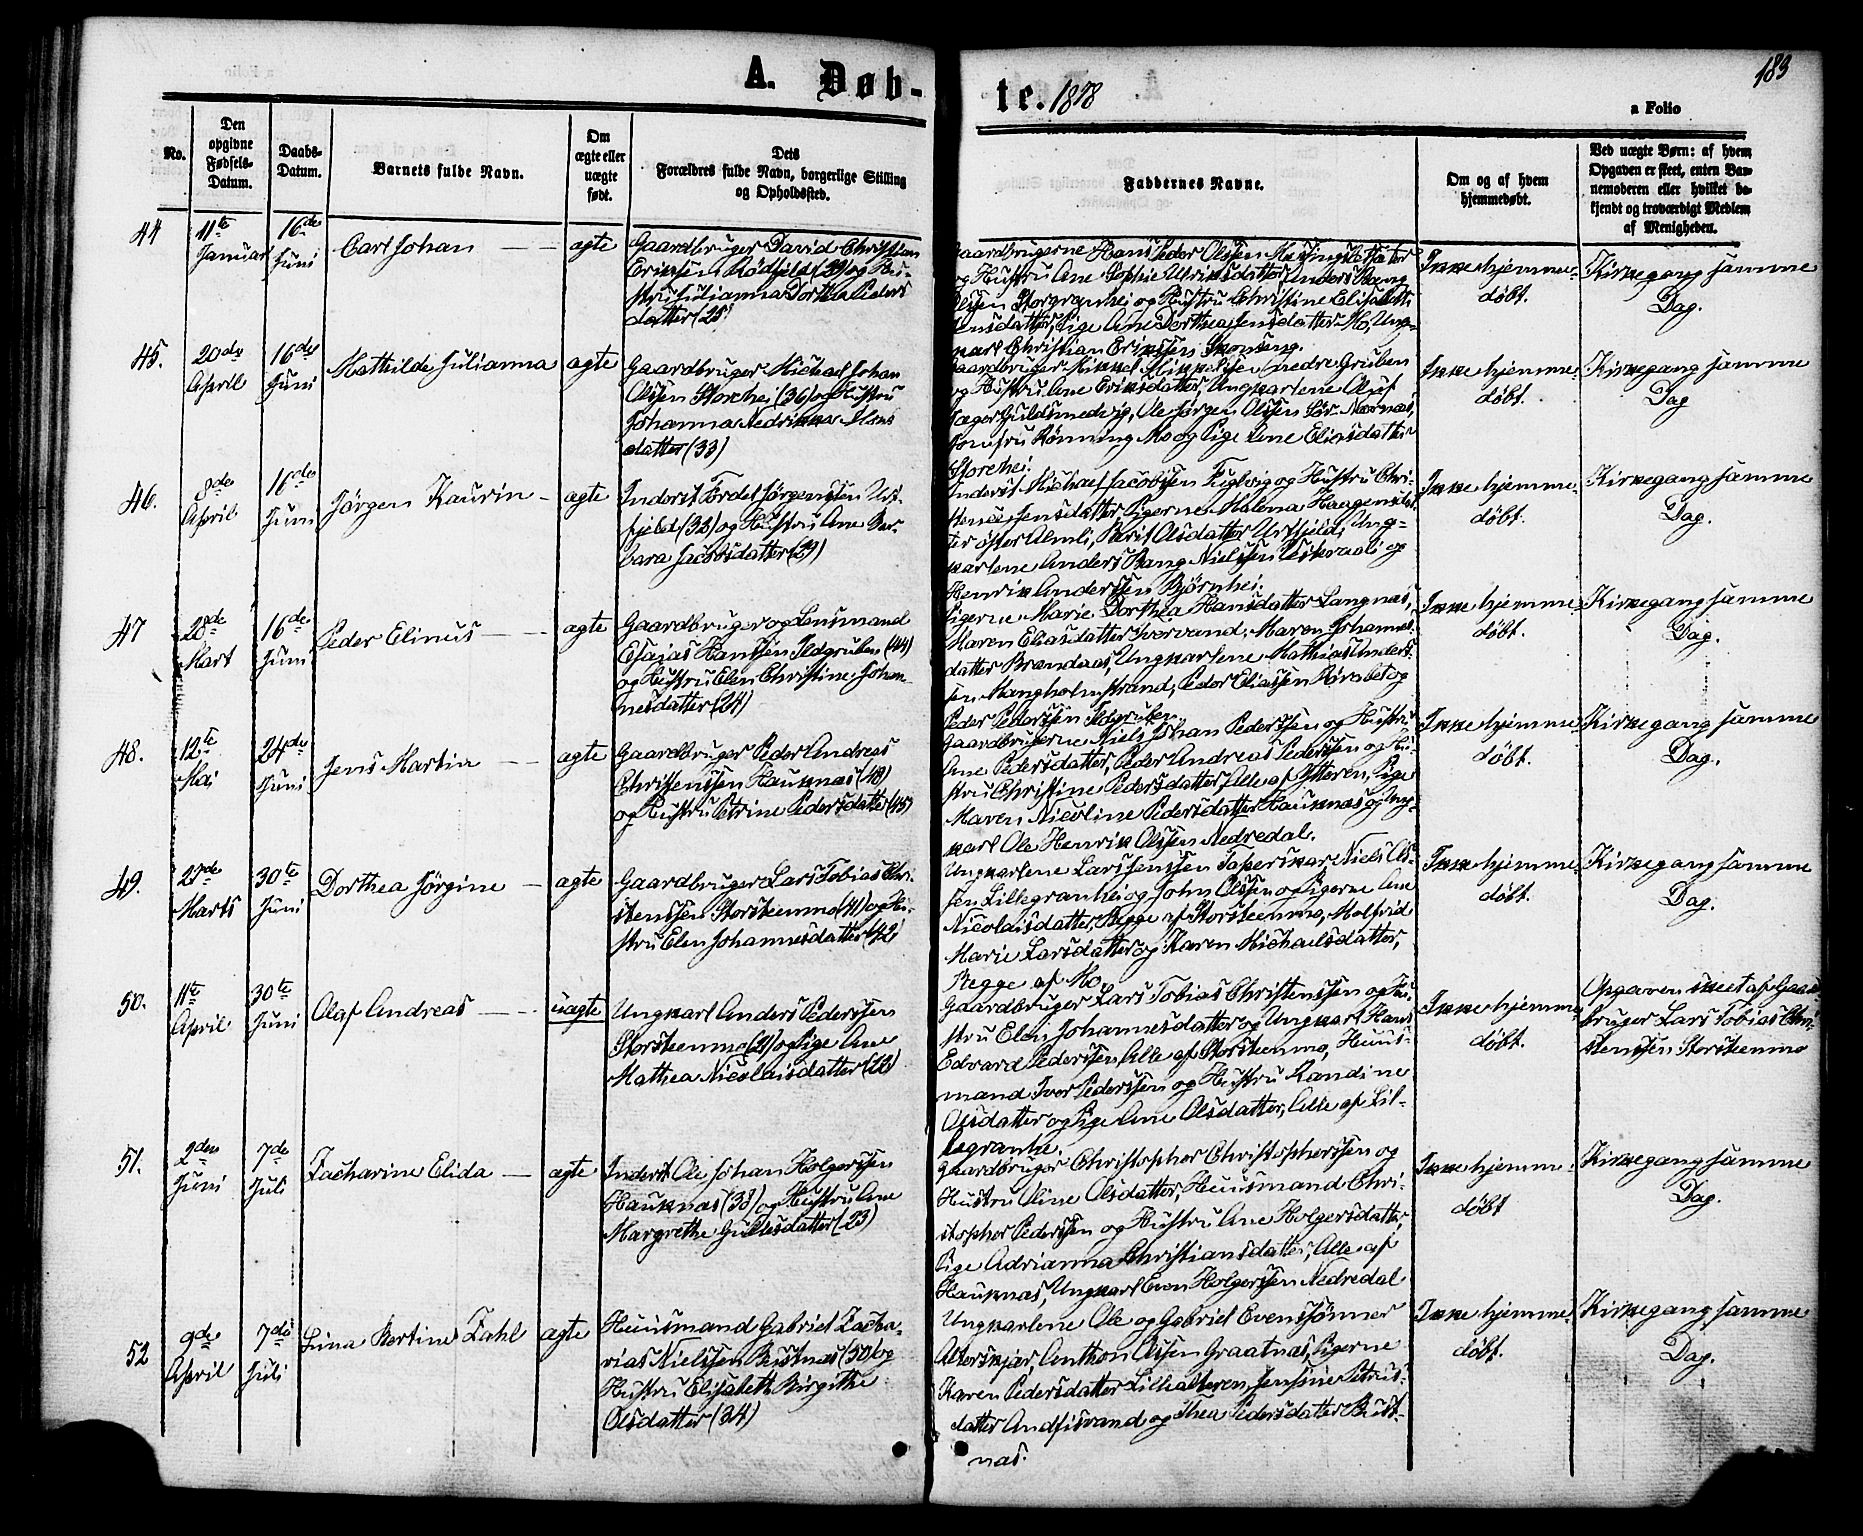 A. Døb-
te. 1878
183
a Folio
No.
Den opgivne Fødsels-Datum.
Daabs-Datum.
Barnets fulde Navn.
Om ægte eller uægte født.
Dets
Forældres fulde Navn, borgerlige Stilling
og Opholdssted.
Faddernes Navne.
Om og af hvem
hjemmedøbt.
Ved uægte Børn: af hvem
Opgaven er skeet, enten Bar-
nemoderen eller hvilket be-
kjendt og troværdigt Medlem
af Menigheden.
44
11te Januar
16de Juni
Carl Johan
ægte
Gaardbruger David Christian
Eriksen Rödfjeld (29) og Hu-
stru Julianna Dorthea Peders
datter (28)
Gaardbrugerne Hans Peder Olssen
og Hustru Ane Sophie Ulriksdatter, Anders Bang
Olsen Storgranhei og Hustru Christine Elisabeth
Jensdatter, Pige Ane Dorthea Jensdatter Mo, Ung-
karl Christian Erikssen Skonseng.
Ikke hjemme-
döbt.
Kirkegang samme
Dag.
45.
20de April
16de Juni
Mathilde Julianna
ægte
Gaardbruger Michael Johan
Olssen Storhei (36) og Hustru
Johanna Hedrikka Mons
datter (33)
Gaardbruger Mikkel Mikkelsen nedre Gruben
og Hustru Ane Eriksdatter, Ungkarlene Oluf
Jæger Guldsmedvig, Ole Jörgen Olssen Sör-Mærnæs,
Jomfru Rönning Mo og Pige Ane Eliasdatter
Storhei.
Ikke hjemme-
döbt.
Kirkegang samme
Dag
46.
8de April
16de Juni
Jörgen Kaurin
ægte
Inderst Fordel Jörgenssen Urt-
fjeld (33) og Hustru Ane Bar-
bara Jacobsdatter (29)
Inderst Michael Jacobsen Fuglvig og Hustru Chri-
stence Jensdatter, Pigerne Malena Haagensdat-
ter öster Almli, Berit Olsdatter Urtfjeld, Ung-
karlene Anders Bang Nielssen Eskraali og
Henrik Anderssen Björnhei.
Ikke hjemme-
döbt.
Kirkegang samme
Dag.
47
28de Mart
16de Juni
Peder Elinus
ægte
Gaardbruger og Lensmand
Esaias Hanssen Ildgruben (44)
og Hustru Elen Christine Johan-
nesdatter (24)
Pigerne Marie Dorthea Hansdatter Langnæs,
Maren Eliasdatter Svorvand, Maren Johannes-
datter Brendaas, Ungkarlene Mathias Anders-
sen Mangholmstrand, Peder Eliassen Rörabet og
Peder Pederssen Ildgruben.
Ikke hjemme-
döbt.
Kirkegang samme
Dag.
48.
12te Mai
24de Juni
Jens Martin
ægte
Gaardbruger Peder Andreas
Christenssen Hauknæs (48)
og Hustru Petrine Pedersdatter (45)
Gaardbrugerne Niels Johan Pederssen og Hustru
Ane Pedersdatter, Peder Andreas Pederssen og Hu-
stru Christine Pedersdatter, Alle af Ytteren, Pige
Maren Nicoline Pedersdatter Hauknæs og Ung-
karl Ole Henrik Olssen Nedredal.
Ikke hjemme
döbt.
Kirkegang samme
Dag.
49.
27de Marts
30te Juni
Dorthea Jörgine
ægte
Gaardbruger Lars Tobias Chri-
stenssen Storsteenmo (41) og Hu-
stru Elen Johannesdatter (42)
Ungkarlene Lars Jenssen Tapeskar, Niels Ol-
sen Lillegranhei og John Olssen og Pigerne Ane
Nicolaisdatter, Begge af Storsteenmo, Malfrid
Marie Larsdatter og Karen Michaelsdatter,
Begge af Mo.
Ikke hjemme-
döbt.
Kirkegang samme
Dag.
50.
11te April
30te Juni
Olaf Andreas
uægte
Ungkarl Anders Pederssen
Storsteenmo (21) og Pige Ane
Mathea Nicolaisdatter (22)
Gaardbruger Lars Tobias Christenssen og Hu-
stru Elen Johannesdatter og Ungkarl Hans
Edvard Pederssen, Alle af Storsteenmo, Huus-
mand Iver Pederssen og Hustru Randine
Olsdatter og Pige Ane Olsdatter, Alle af Lil-
legranhe.
Ikke hjemme-
döbt.
Opgaven skeet af Gaard
bruger Lars Tobias Chri-
stenssen Storsteenmo
51.
2den Juni
7de Juli
Zacharine Elida
ægte
Inderst Ole Johan Holgerssen
Hauknæs (38) og Hustru Ane
Margrethe Gulliksdatter (23)
Gaardbruger Christopher Christopherssen og
Hustru Oline Olsdatter, Huusmand Chri-
stopher Pederssen og Hustru Ane Holgersdatter,
Pige Adrianna Christiansdatter, Alle af
Hauknæs, Ungkarl Even Holgerssen Nedredal
Ikke hjemme-
döbt
Kirkegang samme
Dag.
52
9de April
7de Juli
Lina Bertine Zahl
ægte
Huusmand Gabriel Zacha-
rias Nielssen Bustnæs (30) og
Hustru Elisabeth Birgithe
Olsdatter (34)
Ungkarlene Ole og Gabriel Evenssönner
Alterskjær, Anthon Olssen Graatnæs, Pigerne
Karen Pedersdatter Lillealteren, Jensine Petrus-
datter Andfisvand og Thea Pedersdatter Bust-
næs.
Ikke hjemme-
döbt.
Kirkegang samme
Dag.